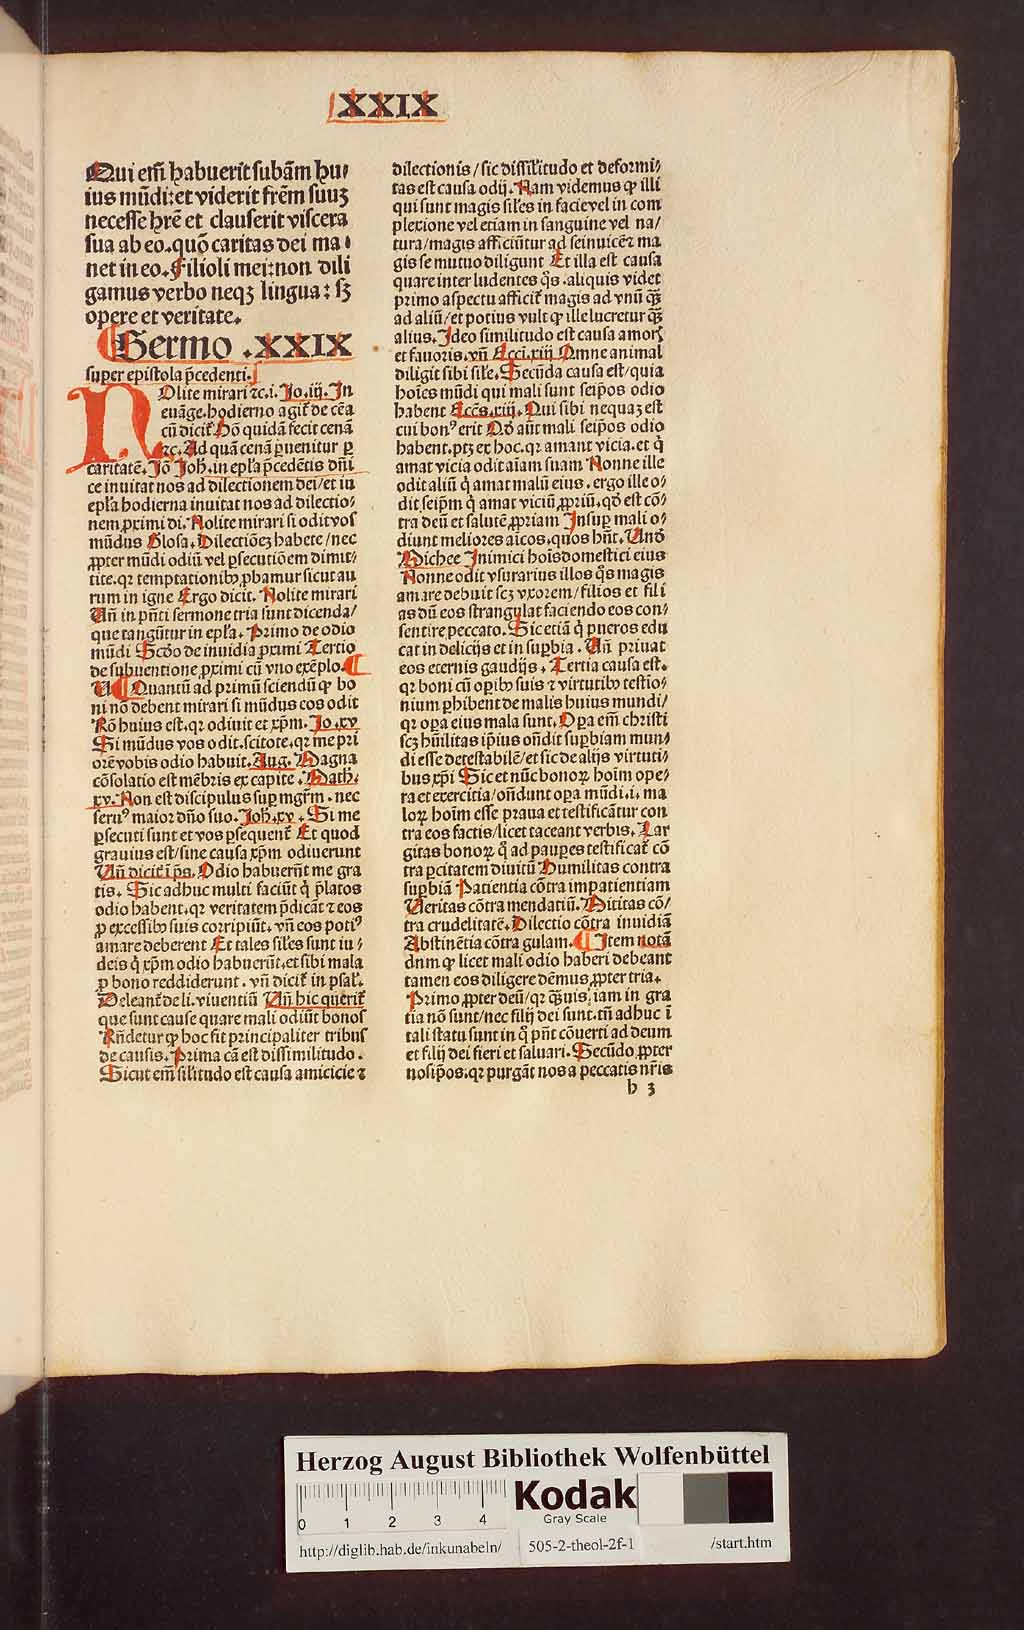 XXIX
Qui em̄ habuerit subãm hu⸗
ius mũdi: et viderit frẽm suuʒ
necesse hr̄e et clauserit viscera
sua ab eo. quõ caritas dei ma⸗
net in eo. Filioli mei: non dili
gamus verbo neqʒ lingua: sʒ
opere et veritate.
Sermo .XXIX
super epistola p̄cedenti.
NOlite mirari ⁊c. i. Jo. iij. In
euãge. hodierno agit̃ de cẽa
cũ dicit̃ Hõ quidã fecit cenã
⁊c. Ad quã cenã ꝑuenitur ꝑ
caritatẽ. Jõ Joh̃. in epl̃a p̄cedẽtis dñi
ce inuitat nos ad dilectionem dei/ et in
epl̃a hodierna inuitat nos ad dilectio⸗
nem ꝓximi di. Nolite mirari si odit vos
mũdus Glosa. Dilectiõeʒ habete/ nec
ꝓpter mũdi odiũ vel ꝑsecutiõem dimit⸗
tite. qꝛ temptationibꝰ ꝓbamur sicut au
rum in igne Ergo dicit. Nolite mirari
Uñ in pñti sermone tria sunt dicenda/
que tangũtur in epl̃a. Primo de odio
mũdi Scḋo de inuidia ꝓximi Tertio
de subuentione ꝓximi cũ vno exẽplo.
Quantũ ad primũ sciendũ ꝙ bo
ni nõ debent mirari si mũdus eos odit
Rõ huius est. qꝛ odiuit et xp̃m. Jo. xv
Si mũdus vos odit. scitote. qꝛ me pri
orẽ vobis odio habuit. Aug. Magna
cõsolatio est mẽbris ex capite. Math.
xv. Non est discipulus suꝑ mgr̃m. nec
seruꝰ maior dño suo. Joh̃. xv. Si me
ꝑsecuti sunt et vos ꝑsequent̃ Et quod
grauius est/ sine causa xp̃m odiuerunt
Uñ dicit̃ i ps̃. Odio habuerũt me gra
tis. Sic adhuc multi faciũt q̃ p̃latos
odio habent. qꝛ veritatem p̃dicãt ⁊ eos
ꝓ excessibꝰ suis corripiũt. vñ eos potiꝰ
amare deberent Et tales sil̃es sunt iu⸗
deis q̃ xp̃m odio habuerũt. et sibi mala
ꝓ bono reddiderunt. vñ dicit̃ in psal̃.
Deleant̃ de li. viuentiũ Uñ hic querit̃
que sunt cause quare mali odiũt bonos
Rñdetur ꝙ hoc fit principaliter tribus
de causis. Prima cã est dissimilitudo.
Sicut em̃ sil̃itudo est causa amicicie ⁊
dilectionis/ sic dissil̃itudo et deformi⸗
tas est causa odij. Nam videmus ꝙ illi
qui sunt magis sil̃es in facie vel in com
plexione vel etiam in sanguine vel na⸗
tura/ magis afficiũtur ad seinuicẽ ⁊ ma
gis se mutuo diligunt Et illa est causa
quare inter ludentes q̃s. aliquis videt
primo aspectu afficit̃ magis ad vnũ q̃ʒ
ad aliũ/ et potius vult ꝙ ille lucretur q̃ʒ
alius. Ideo similitudo est causa amoꝝ
et fauoris. vñ Ecci. xiij Omne animal
diligit sibi sil̃e. Secũda causa est/ quia
hoĩes mũdi qui mali sunt seip̃os odio
habent Eccs̃. xiiij. Qui sibi nequaʒ est
cui bonꝰ erit Qḋ aũt mali seip̃os odio
habent. ptʒ ex hoc. qꝛ amant vicia. et q̃
amat vicia odit aĩam suam Nonne ille
odit aliũ q̃ amat malũ eius. ergo ille o⸗
dit seip̃m q̃ amat viciũ ꝓpriũ. qḋ est cõ⸗
tra deũ et salutẽ ꝓpriam Insuꝑ mali o⸗
diunt meliores aĩcos. quos hñt. Unḋ
Michee Inimici hoĩs domestici eius
Nonne odit vsurarius illos q̃s magis
amare debuit scʒ vxorem/ filios et fili
as dũ eos strangulat faciendo eos con⸗
sentire peccato. Sic etiã q̃ pueros edu
cat in delicijs et in suꝑbia. Uñ priuat
eos eternis gaudijs. Tertia causa est.
qꝛ boni cũ oꝑibꝰ suis ⁊ virtutibꝰ testio⸗
nium ꝑhibent de malis huius mundi/
qꝛ oꝑa eius mala sunt. Oꝑa em̃ christi
scʒ hũilitas ip̃ius oñdit suꝑbiam mun⸗
di esse detestabilẽ/ et sic de alijs virtuti⸗
bus xp̃i Sic et nũc bonoꝝ hoĩm oꝑe⸗
ra et exercitia/ oñdunt oꝑa mũdi. i. ma
loꝝ hoĩm esse praua et testificãtur con
tra eos factis/ licet taceant verbis. Lar
gitas bonoꝝ q̃ ad pauꝑes testificat̃ cõ
tra ꝑcitatem diuitũ Humilitas contra
suꝑbiã Patientia cõtra impatientiam
Ueritas cõtra mendatiũ. Mititas cõ⸗
tra crudelitatẽ. Dilectio cõtra inuidiã
Abstinẽtia cõtra gulam. Item notã
dum ꝙ licet mali odio haberi debeant
tamen eos diligere dẽmus ꝓpter tria.
Primo ꝓpter deũ/ qꝛ q̃ʒuis iam in gra
tia nõ sunt/ nec filij dei sunt. tñ adhuc ĩ
tali statu sunt in q̃ pñt cõuerti ad deum
et filij dei fieri et saluari. Secũdo ꝓpter
nosip̃os. qꝛ purgãt nos a peccatis nr̃is
h 3
Herzog August Bibliothek Wolfenbüttel
0 1 2 3 4
Kodak
Gray Scale
http://diglib.hab.de/inkunabeln/ 505-2-theol-2f-1 /start.htm